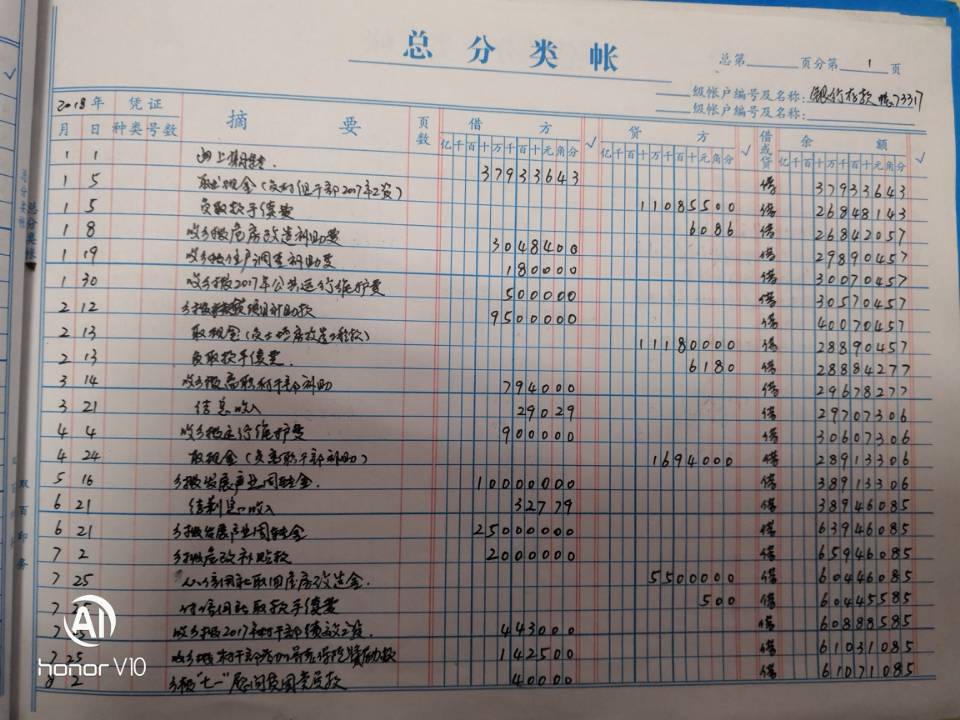 总分类帐
总第 页分第 1 页
级帐户编号及名称: 银行存款 73317
级帐户编号及名称:
2018年 凭证 摘要 页数 借方 √ 贷方 √ 借或贷 余额 √
月 日 种类 号数 亿千百十万千百十元角分 亿千百十万千百十元角分 亿千百十万千百十元角分
1 1 37933643 借 37933643
1 5 取现金(发村组干部2017年工资) 11085500 借 26848143
1 5 负取款手续费 6086 借 26842057
1 8 收乡拨危房改造补助费 3048400 借 29890457
1 19 收乡拨 户调查补助费 180000 借 30070457
1 30 收乡拨2017年公共运行维护费 500000 借 30570457
2 12 乡拨 项目补助款 9500000 借 40070457
2 13 取现金( 房改造工程款) 11180000 借 28890457
2 13 负取款手续费 6180 借 28884277
3 14 收乡拨离职村干部补助 794000 借 29678277
3 21 结息收入 29029 借 29707306
4 4 收乡拨运行维护费 900000 借 30607306
4 24 取现金(负离职干部补助) 1694000 借 28913306
5 16 乡拨发展产业周转金. 10000000 借 38913306
6 21 结利息收入 32779 借 38946085
6 21 乡拨发展产业周转金 25000000 借 63946085
7 2 乡拨危改补贴款 2000000 借 65946085
7 25 从信用社取回危房改造金. 5500000 借 60446085
7 25 付信用社取款手续费 500 借 60445585
7 25 收乡拨2017年村干部绩效工资. 443000 借 60888585
7 25 收乡拨村干部 养老保险 款 142500 借 61031085
8 2 乡拨"七一"慰问贫困党员款 40000 借 61071085
总分类帐
AI
honor V10